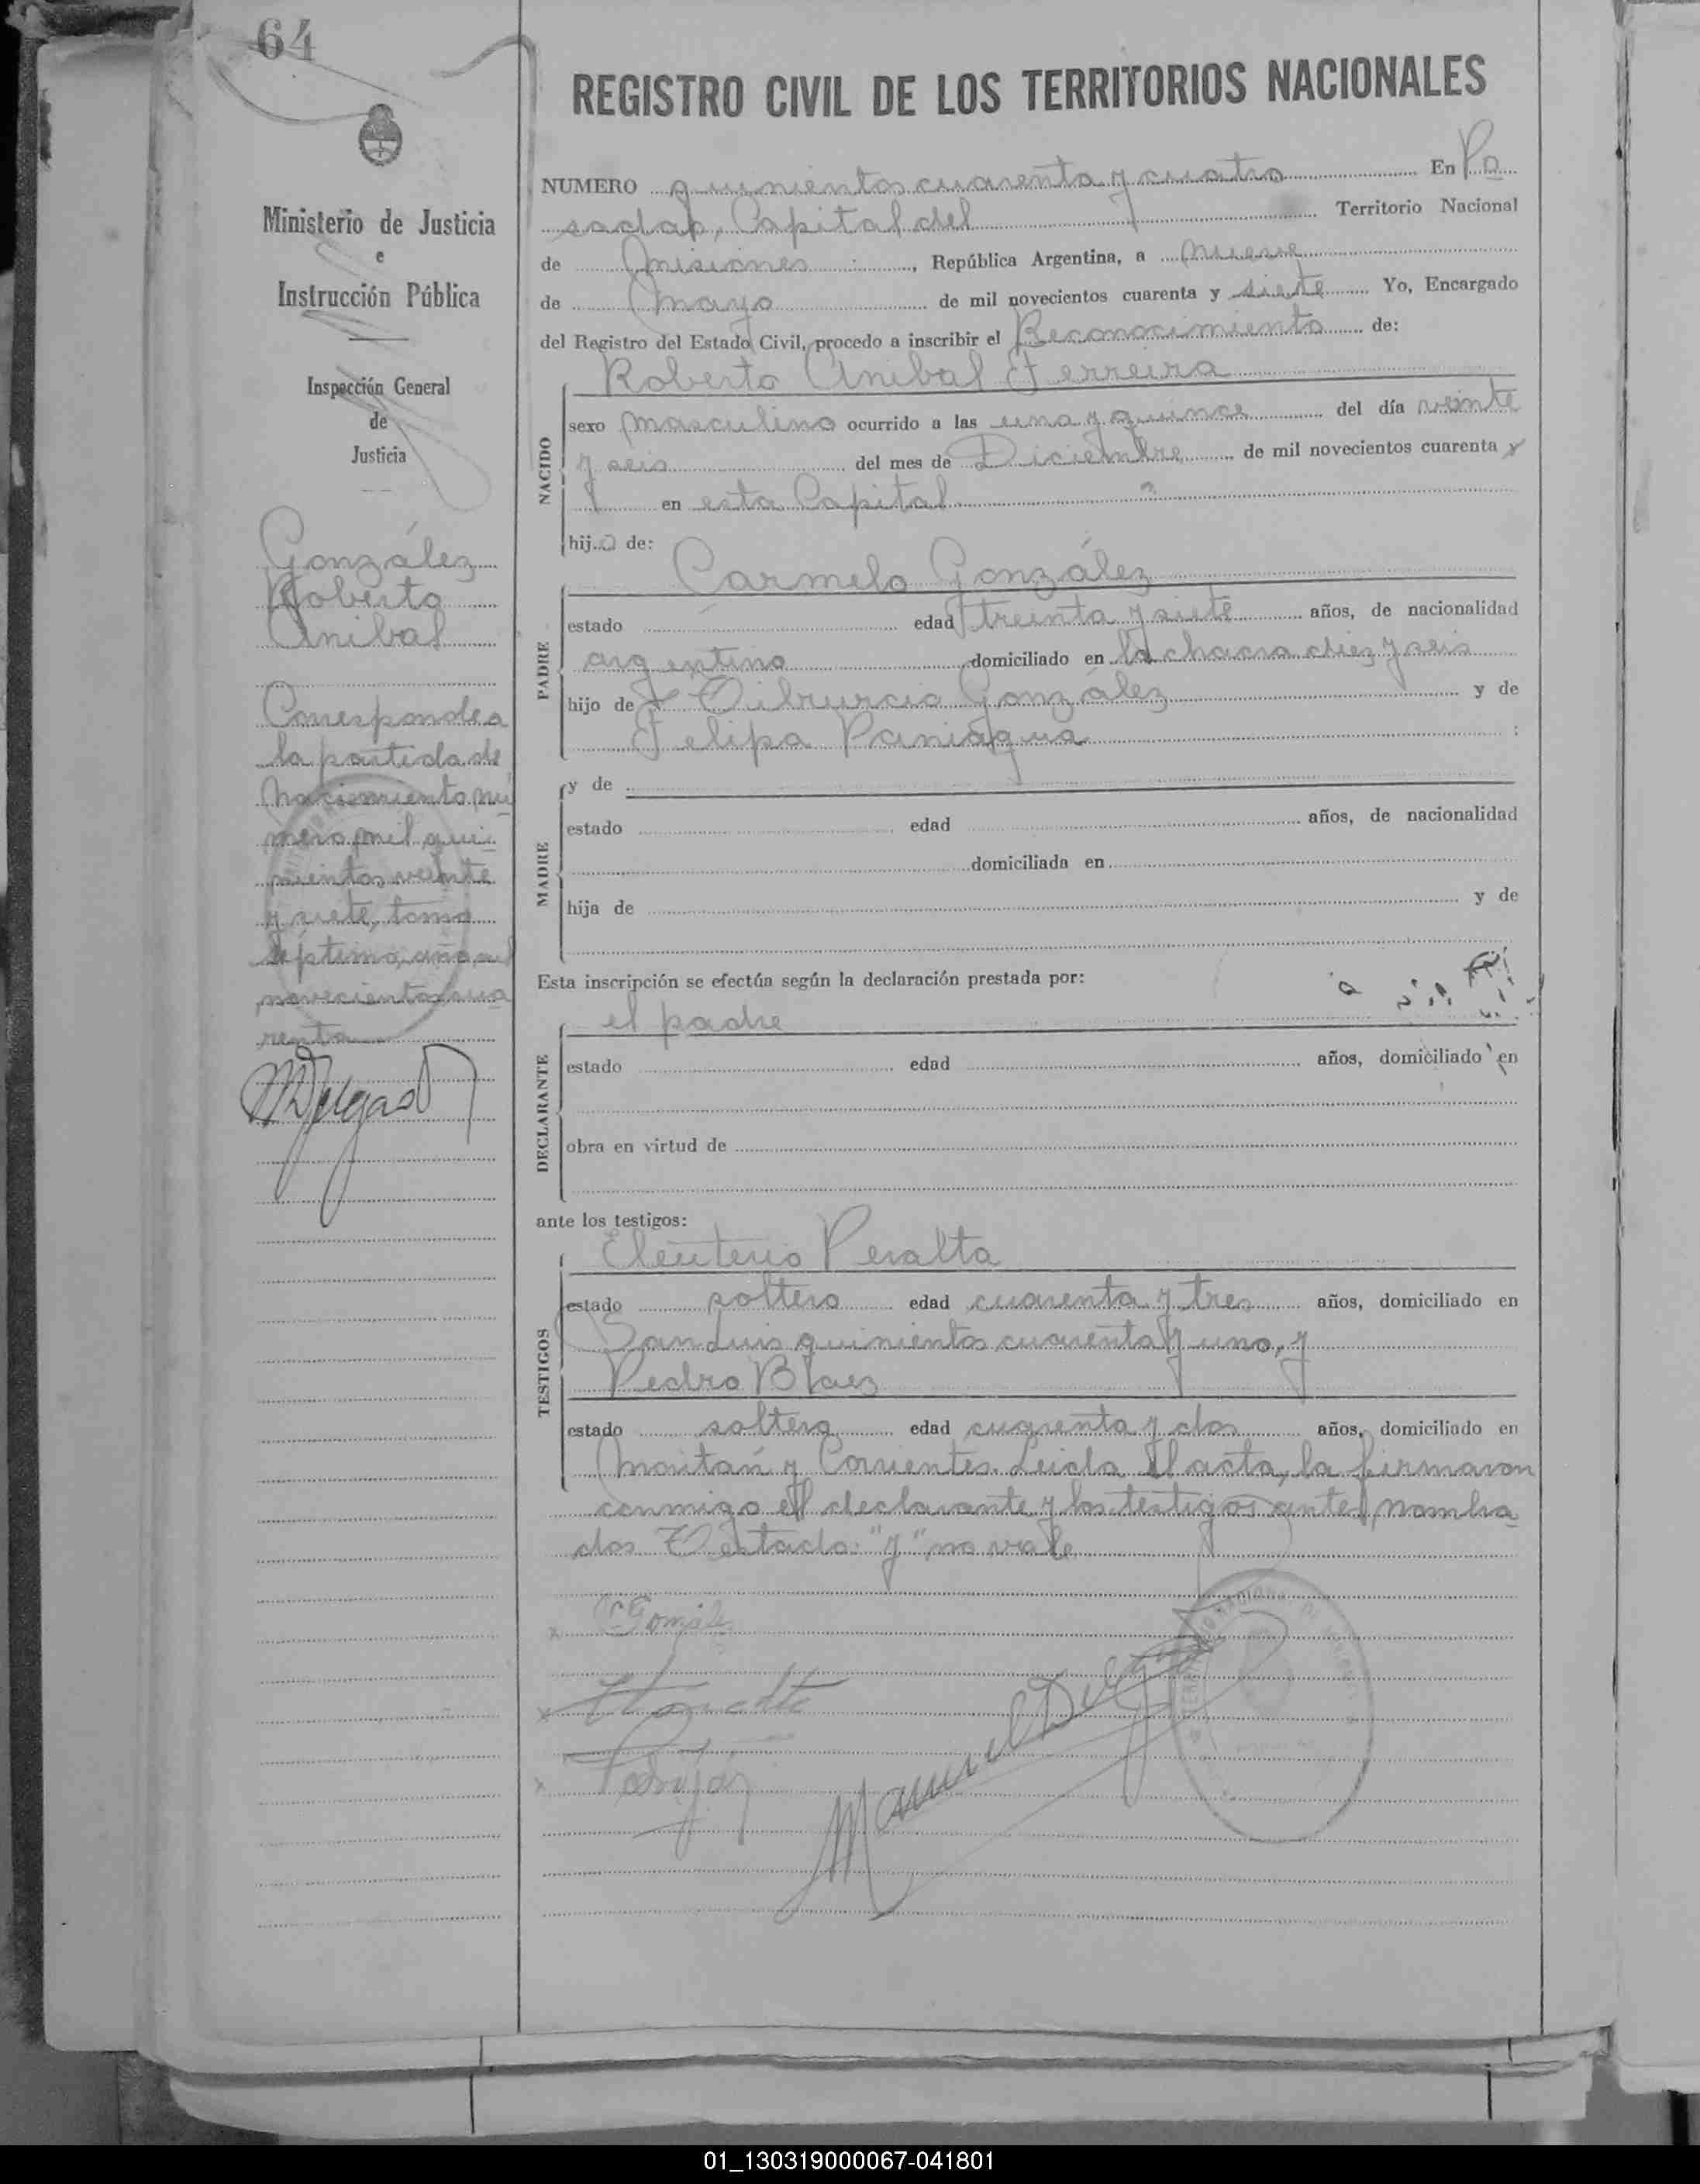 64
Ministerio de Justicia
e
Instrucción Pública
Inspección General
de
Justicia
González
Roberto
Anibal
Corresponde a
la partida de
nacimiento nú
mero mil qui-
nientos veinte
y siete, tomo
séptimo, año mil
novecientos cua
renta
MDelgado
REGISTRO CIVIL DE LOS TERRITORIOS NACIONALES
NUMERO quinientos cuarenta y cuatro En Po
sadas, Capital del Territorio Nacional
de Misiones, República Argentina, a nueve
de mayo de mil novecientos cuarenta y siete Yo, Encargado
del Registro del Estado Civil, procedo a inscribir el Reconocimiento de:
Roberto Anibal Ferreira
NACIDO
sexo masculino ocurrido a las una y quince del día veinte
y seis del mes de Diciembre de mil novecientos cuarenta y
en esta Capital
hijo de:
Carmelo González
PADRE
estado edad treinta y siete años, de nacionalidad
argentino domiciliado en la chacra diez y seis
hijo de Tiburcio González y de
Felipa Paniagua :
y de
MADRE
estado edad años, de nacionalidad
domiciliada en
hija de y de
Esta inscripción se efectúa según la declaración prestada por:
el padre
DECLARANTE
estado edad años, domiciliado en
obra en virtud de
ante los testigos:
Eleuterio Peralta
TESTIGOS
estado soltero edad cuarenta y tres años, domiciliado en
San Luis quinientos cuarenta y uno, y
Pedro Blaez
estado soltero edad cuarenta y dos años, domiciliado en
y Corrientes. Leida el acta, la firmaron
conmigo el declarante y los testigos antes nombra
dos Testado: "y" no vale
Manuel Delgado
01_130319000067-041801